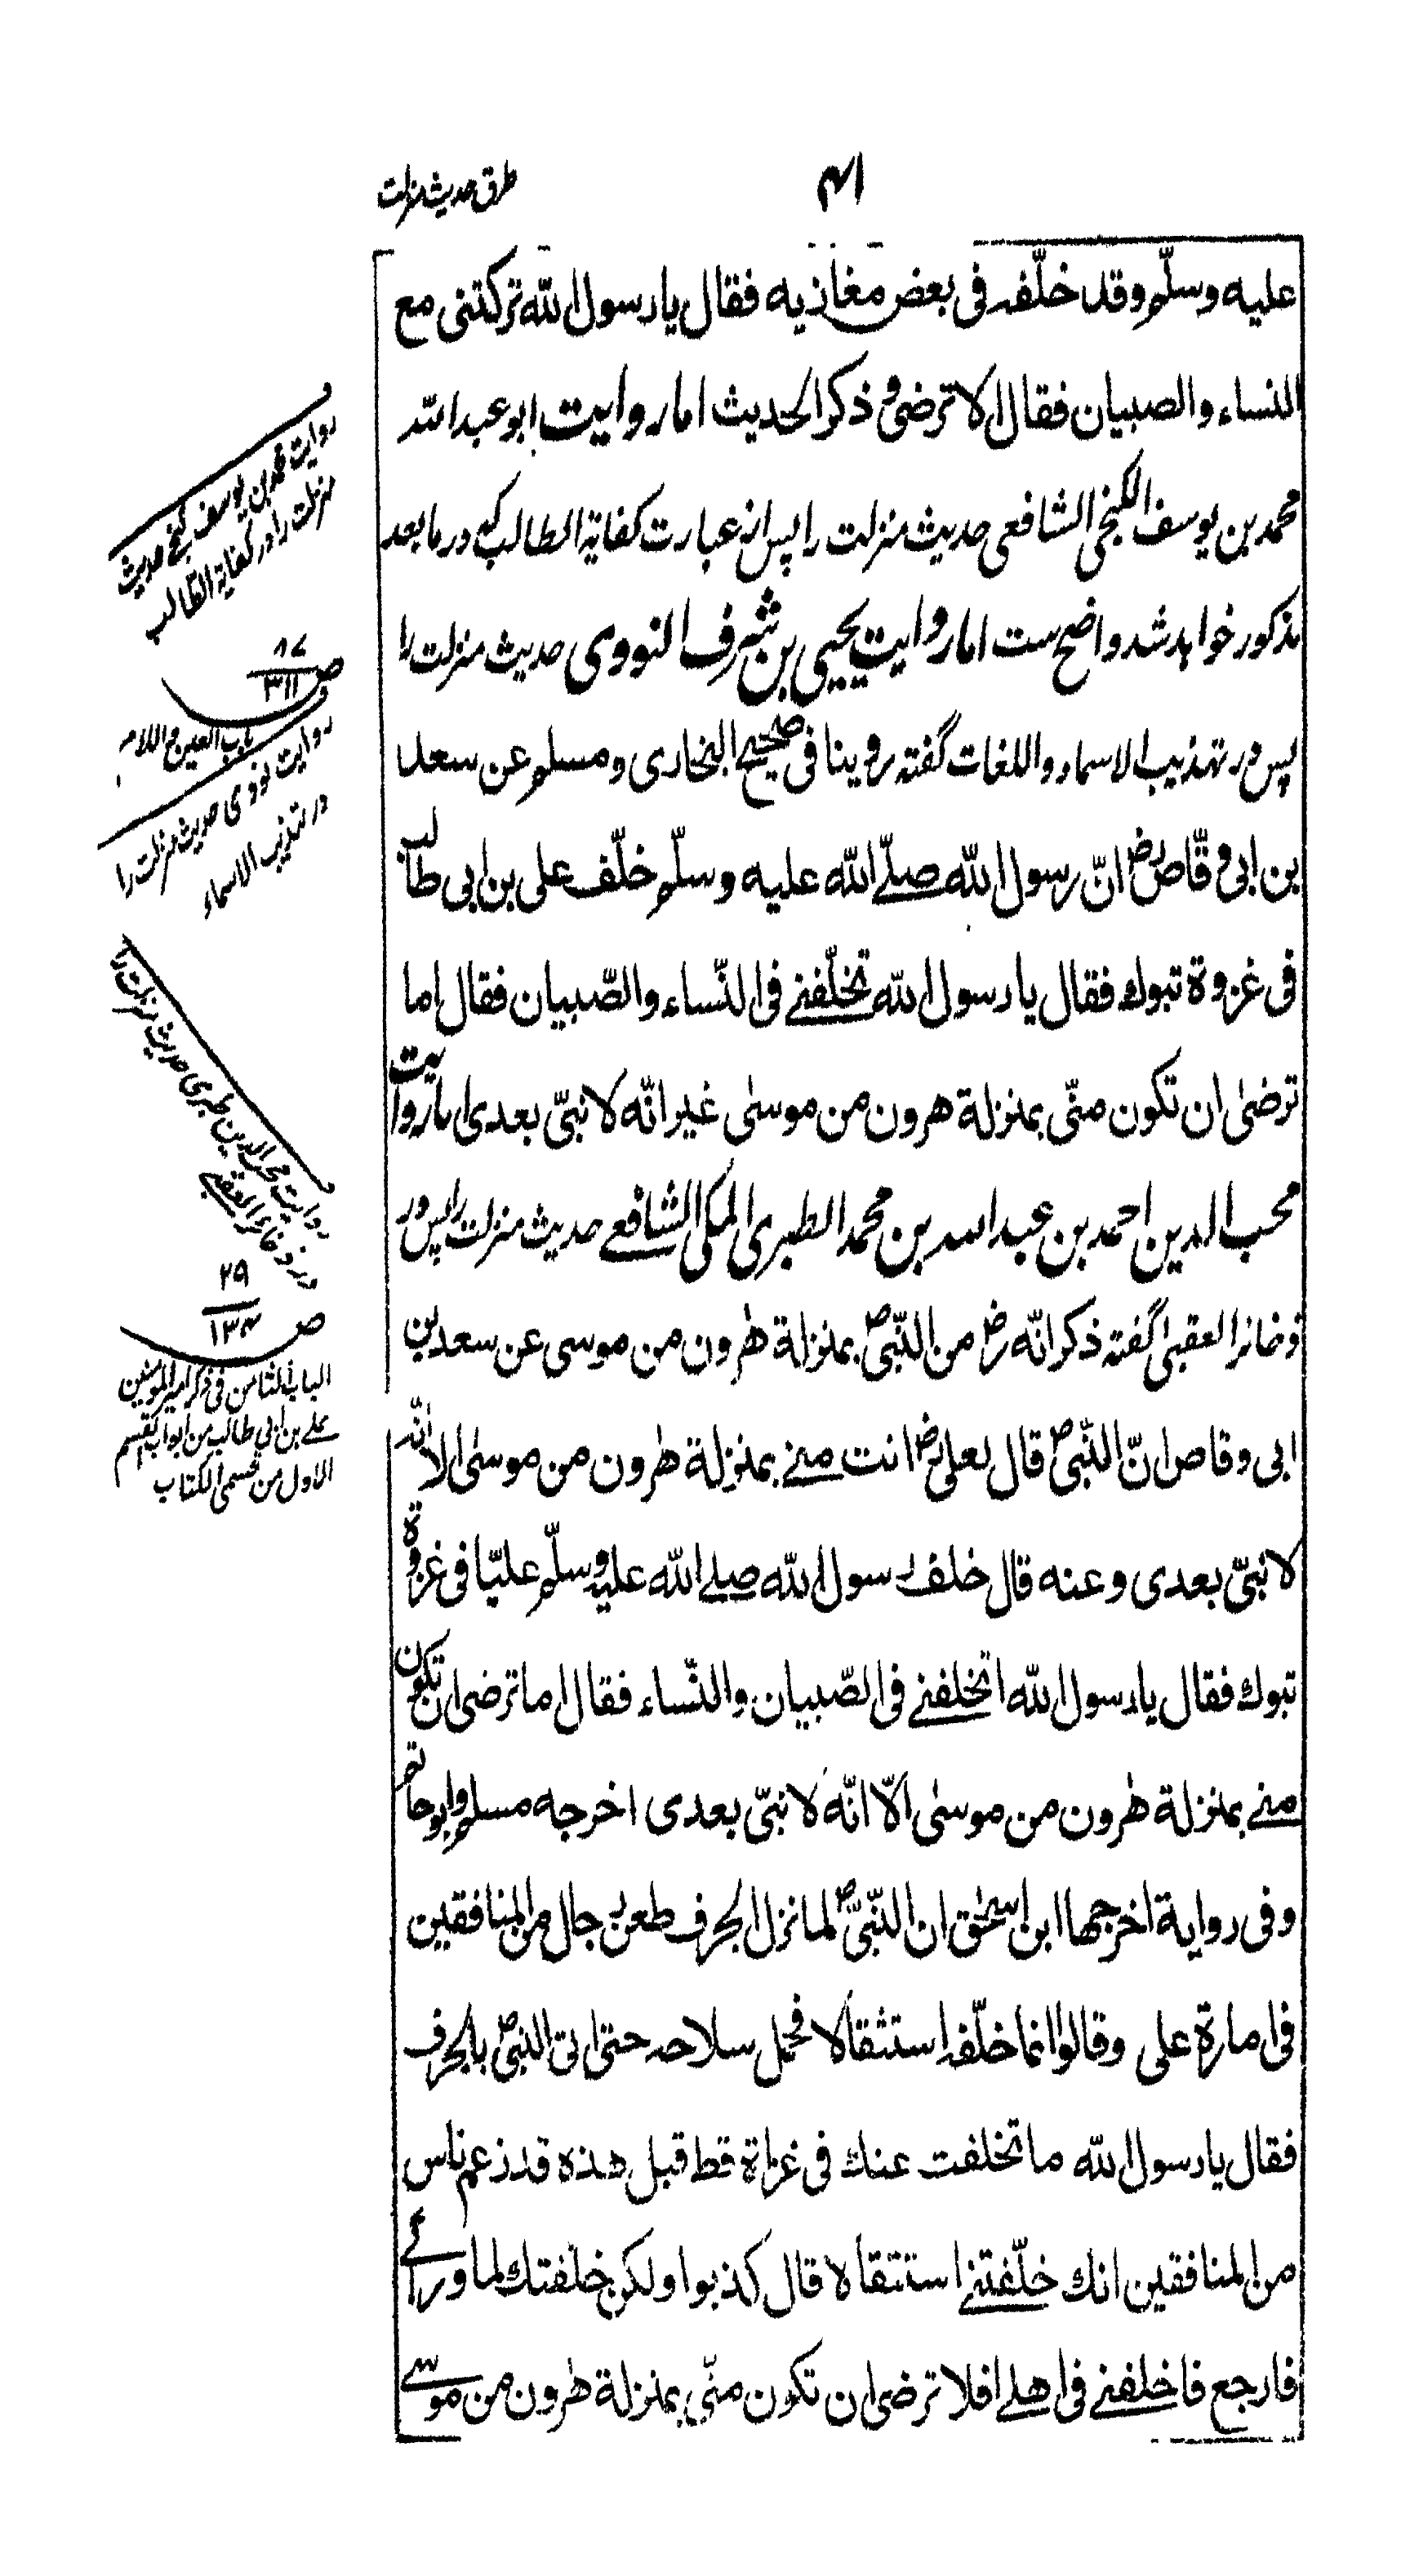 طرق حدیث منزلت
۴۱
علیه وسلّم وقد خلّفه فی بعض مغازیه فقال یا رسول الله ترکتنی مع
النساء والصبیان فقال الا ترضی و ذکر الحدیث اما روایت ابو عبد الله
محمد بن یوسف الکنجی الشافعی حدیث منزلت را پس از عبارت کفایة الطالب که در ما بعد
مذکور خواهد شد واضح ست اما روایت یحیی بن شرف النووی حدیث منزلت را
پس در تهذیب الاسماء و اللغات گفته روینا فی صحیح البخاری و مسلم عن سعد
بن ابی وقّاص رض انّ رسول الله صلّے الله علیه وسلّم خلّف علی بن ابی طالب
فی غزوة تبوك فقال یا رسول الله تخلّفنے فی النّساء والصّبیان فقال اما
ترضیٰ ان تکون منّی بمنزلة هرون من موسیٰ غیر انّه لا نبیّ بعدی اما روایت
محب الدین احمد بن عبد الله بن محمد الطبری المکی الشافعے حدیث منزلت را پس در
ذخائر العقبی گفته ذکر انّه رض من النّبی ص بمنزلة هٰرون من موسی عن سعد بن
ابی وقاص انّ النّبی ص قال لعلی رض انت منے بمنزلة هٰرون من موسیٰ الا انّه
لا نبیّ بعدی وعنه قال خلف رسول الله صلے الله علیه وسلّم علیّا فی غزوة
تبوك فقال یا رسول الله اتخلفنے فی الصّبیان والنّساء فقال اما ترضی ان تکون
منے بمنزلة هٰرون من موسیٰ الّا انّه لا نبیّ بعدی اخرجه مسلم وابو حاتم
وفی روایة اخرجها ابن اسحٰق ان النّبیّ ص لما نزل الجرف طعن رجال من المنافقین
فی امارة علی وقالوا انما خلّفه استثقالا فحمل سلاحه حتی اتی النبی ص بالجرف
فقال یا رسول الله ما تخلفت عنك فی غزاة قط قبل هذه قد زعم ناس
من المنافقین انك خلّفتنے استثقالا قال کذبوا ولکن خلفتك لما ورائے
فارجع فاخلفنے فی اهلے افلا ترضی ان تکون منّی بمنزلة هٰرون من موسے
روایت محمد بن یوسف کنجی حدیث
منزلت را در کفایة الطالب
۸۷
ص ۳۱۱
باب العین و اللام
روایت نووی حدیث منزلت را
در تهذیب الاسماء
روایت محب الدین طبری حدیث منزلت را
در ذخائر العقبے
۲۹
ص ۱۳۴
الباب الثامن فی ذکر امیر المومنین
علے بن ابی طالب من ابواب القسم
الاول من قسمی الکتاب